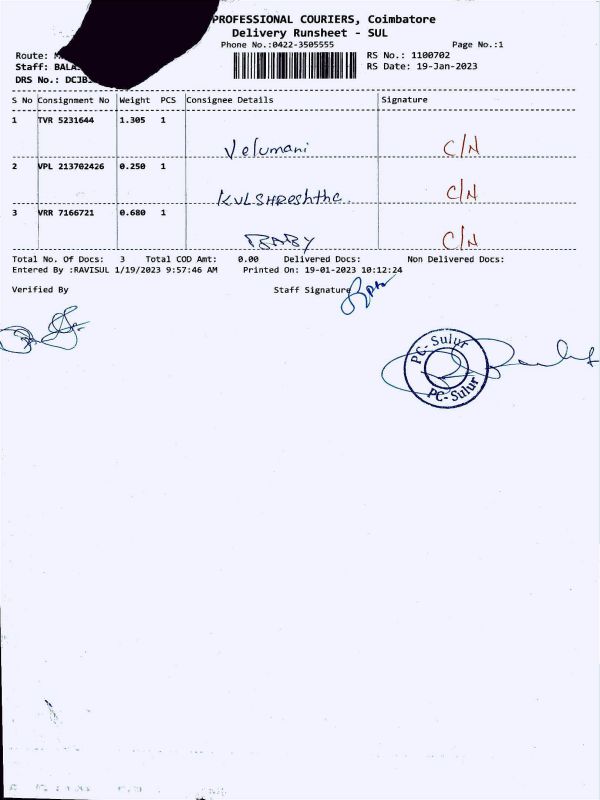 PROFESSIONAL COURIERS, Coimbatore
Delivery Runsheet - SUL
Phone No.:0422-3505555 Page No.:1
Route: RS No.: 1100702
Staff: RS Date: 19-Jan-2023
DRS No.:
S No Consignment No Weight PCS Consignee Details Signature
1 TVR 5231644 1.305 1
Velumani C/N
2 VPL 213702426 0.250 1
KULSHReshtha. C/N
3 VRR 7166721 0.680 1
BABY C/N
Total No. Of Docs: 3 Total COD Amt: 0.00 Delivered Docs: Non Delivered Docs:
Entered By :RAVISUL 1/19/2023 9:57:46 AM Printed On: 19-01-2023 10:12:24
Verified By Staff Signature
PC-Sulur
PC-Sulur